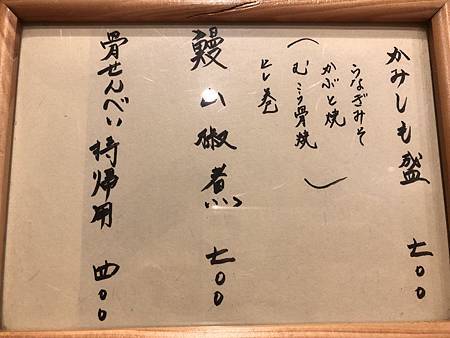 かみしも盛 七〇〇
うなぎみそ
かぶと焼
（むこう骨焼）
ヒレ巻
鰻山椒煮 七〇〇
骨せんべい持帰用 四〇〇